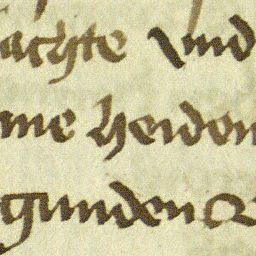 achte vnd
me heiden
gunden